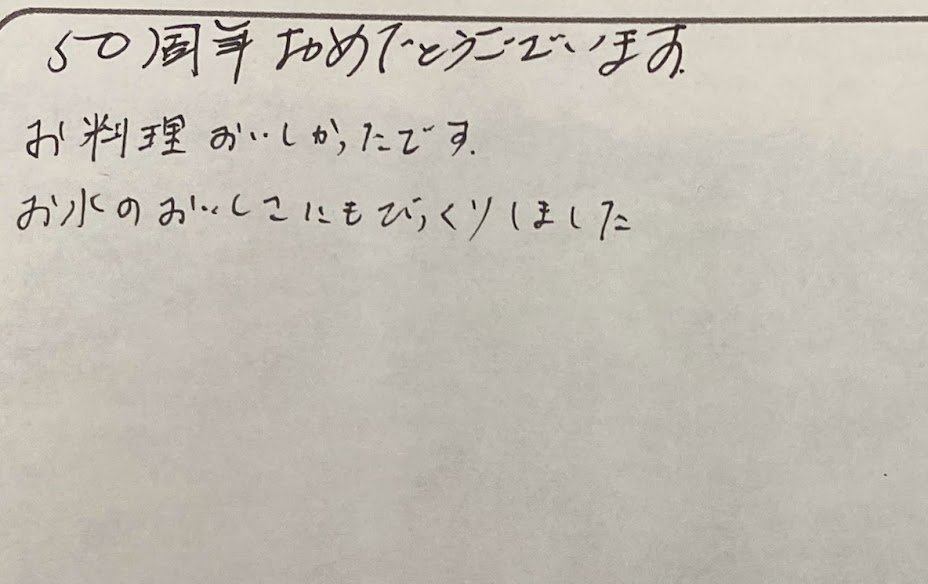 50周年おめでとうございます.
お料理おいしかったです.
お水のおいしさにもびっくりしました